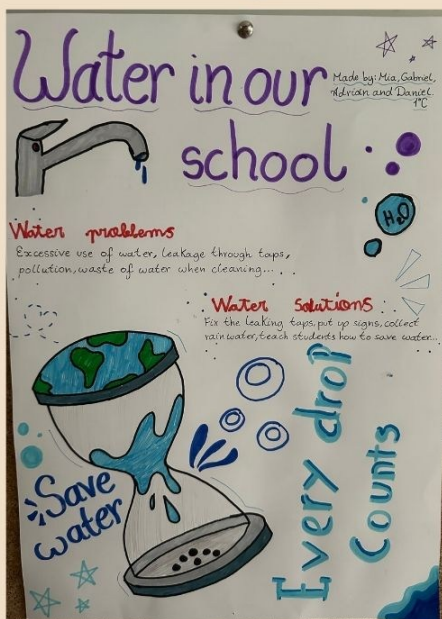 Water in our
school
Made by: Mia, Gabriel,
Adrian and Daniel
1°C
H2O
Water problems
Excessive use of water, leakage through taps,
pollution, waste of water when cleaning...
Water solutions
Fix the leaking taps, put up signs, collect
rainwater, teach students how to save water...
Save
water
Every drop
Counts